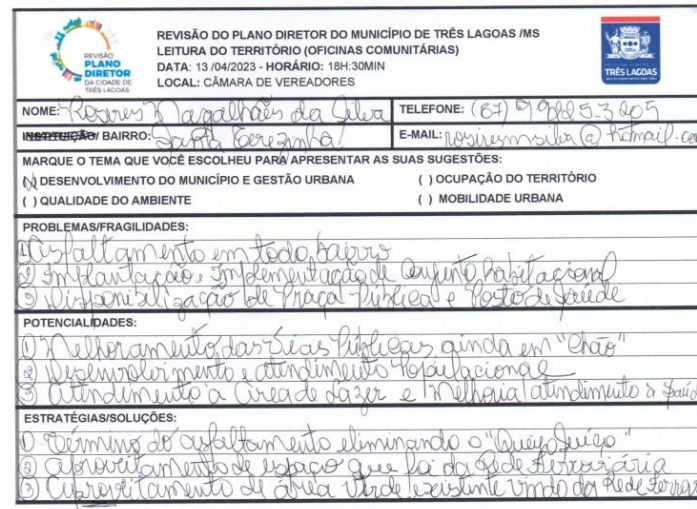 REVISÃO
PLANO
DIRETOR
DA CIDADE DE
TRÊS LAGOAS
REVISÃO DO PLANO DIRETOR DO MUNICÍPIO DE TRÊS LAGOAS /MS
LEITURA DO TERRITÓRIO (OFICINAS COMUNITÁRIAS)
DATA: 13 /04/2023 - HORÁRIO: 18H:30MIN
LOCAL: CÂMARA DE VEREADORES
TRÊS LAGOAS
NOME: Magalhães da Silva
TELEFONE: (67)
INSTITUIÇÃO/ BAIRRO: Santa Terezinha
E-MAIL: rosiresmsilva@hotmail.co
MARQUE O TEMA QUE VOCÊ ESCOLHEU PARA APRESENTAR AS SUAS SUGESTÕES:
(X) DESENVOLVIMENTO DO MUNICÍPIO E GESTÃO URBANA
( ) OCUPAÇÃO DO TERRITÓRIO
( ) QUALIDADE DO AMBIENTE
( ) MOBILIDADE URBANA
PROBLEMAS/FRAGILIDADES:
① Asfaltamento em todo bairro
② Implantação e Implementação de Conjunto habitacional
③ Disponibilização de Praça Pública e Posto de Saúde
POTENCIALIDADES:
① Melhoramento das Vias Públicas ainda em "Chão"
② Desenvolvimento e atendimento Populacional
③ Atendimento à área de Lazer e Melhoria atendimento à Saúd
ESTRATÉGIAS/SOLUÇÕES:
① Término do asfaltamento eliminando o
② Aproveitamento de espaço que foi da Rede Ferroviária
③ Aproveitamento de área Verde existente vindo da Rede Ferrov